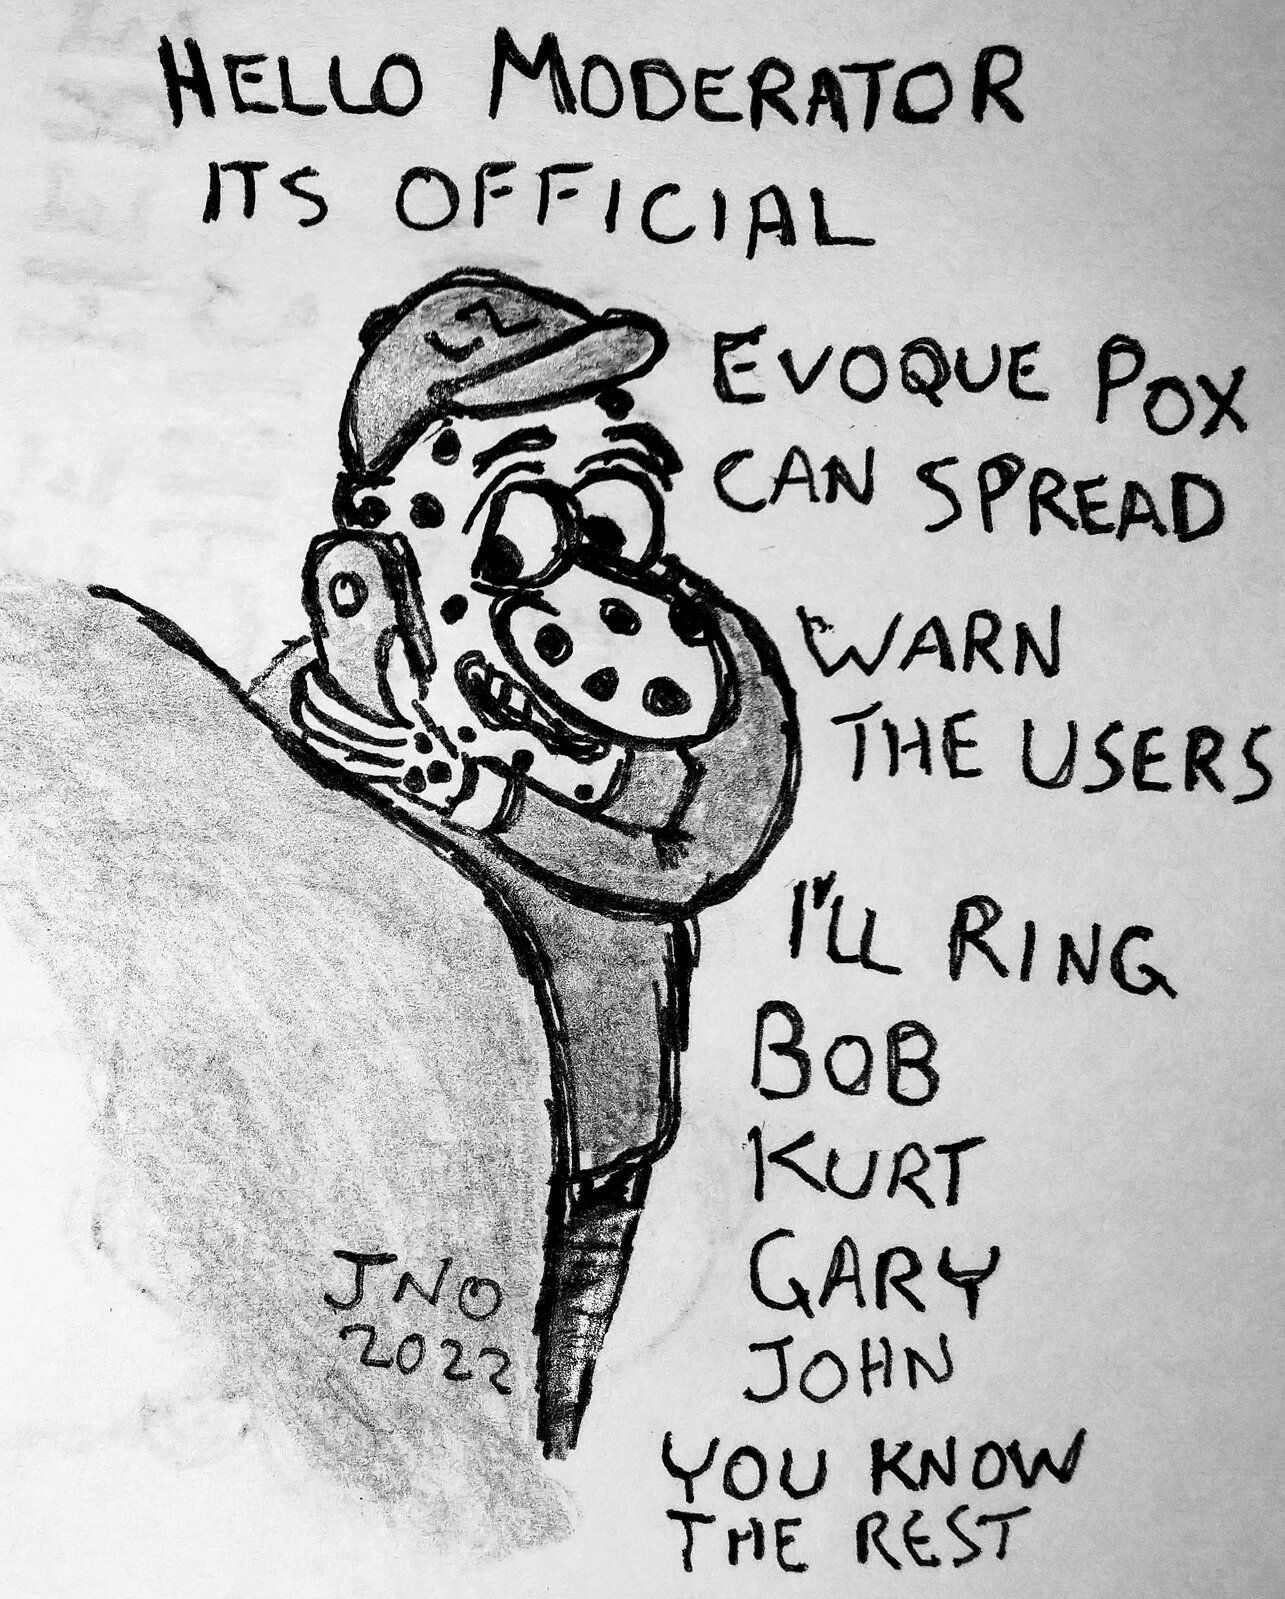 HELLO MODERATOR
ITS OFFICIAL
EVOQUE POX
CAN SPREAD
WARN
THE USERS
I'LL RING
BOB
KURT
GARY
JOHN
YOU KNOW
THE REST
JNO
2022